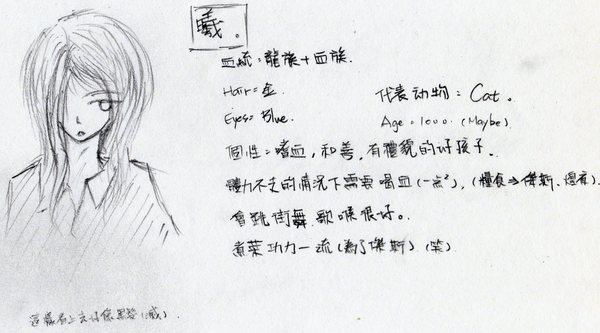 曦。
血統=龍族+血族.
Hair=金
代表动物:Cat。
Eyes=Blue.
Age=1000.(Maybe).
個性=嗜血,和善,有禮貌的好孩子。
體力不足的情況下需要喝血(一点²),(糧食→傑斯、
會跳街舞,歌喉很好。
煮菜功力一流(為了傑斯).(笑)
這樣看上去好像黑髮(感).